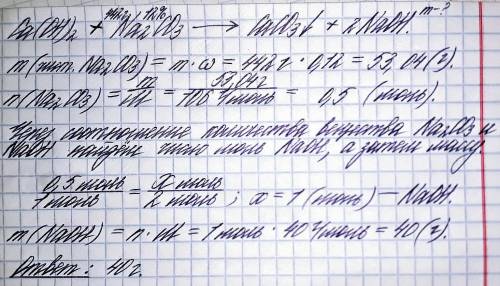 m-?
442г 12%
Ca(OH)₂ + Na₂CO₃ ⟶ CaCO₃↓ + 2NaOH.
m(чист. Na₂CO₃) = m · ω = 442г · 0,12 = 53,04(г).
n(Na₂CO₃) = m/M = 53,04г/106 г/моль = 0,5 (моль).
Через соотношение количества вещества Na₂CO₃ и
NaOH найдём число моль NaOH, а затем массу.
0,5моль/1моль = x моль/2 моль ; x = 1(моль) – NaOH.
m(NaOH) = n · M = 1моль · 40 г/моль = 40(г).
Ответ: 40г.